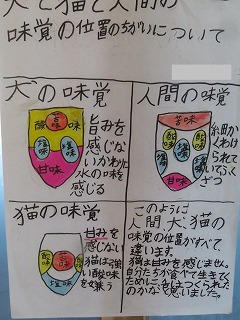 犬と猫と人間の
味覚の位置のちがいについて
犬の味覚
苦味
酸味
塩味
塩味
甘味
旨みを
感じな
いかわりに
水の味を
感じる
人間の味覚
苦味
酸味
酸味
塩味
塩味
甘味
細か
くわけ
られて
いて
ふくざつ
猫の味覚
酸味
苦味
酸味
塩味
甘みを
感じない
猫は強い酸味を嫌う
このように
人間、犬、猫の
味覚の位置がすべて
違います。
猫は甘みを感じません。
自分たちが食べて生きてく
ために舌はつくられた
のかなと思いました。